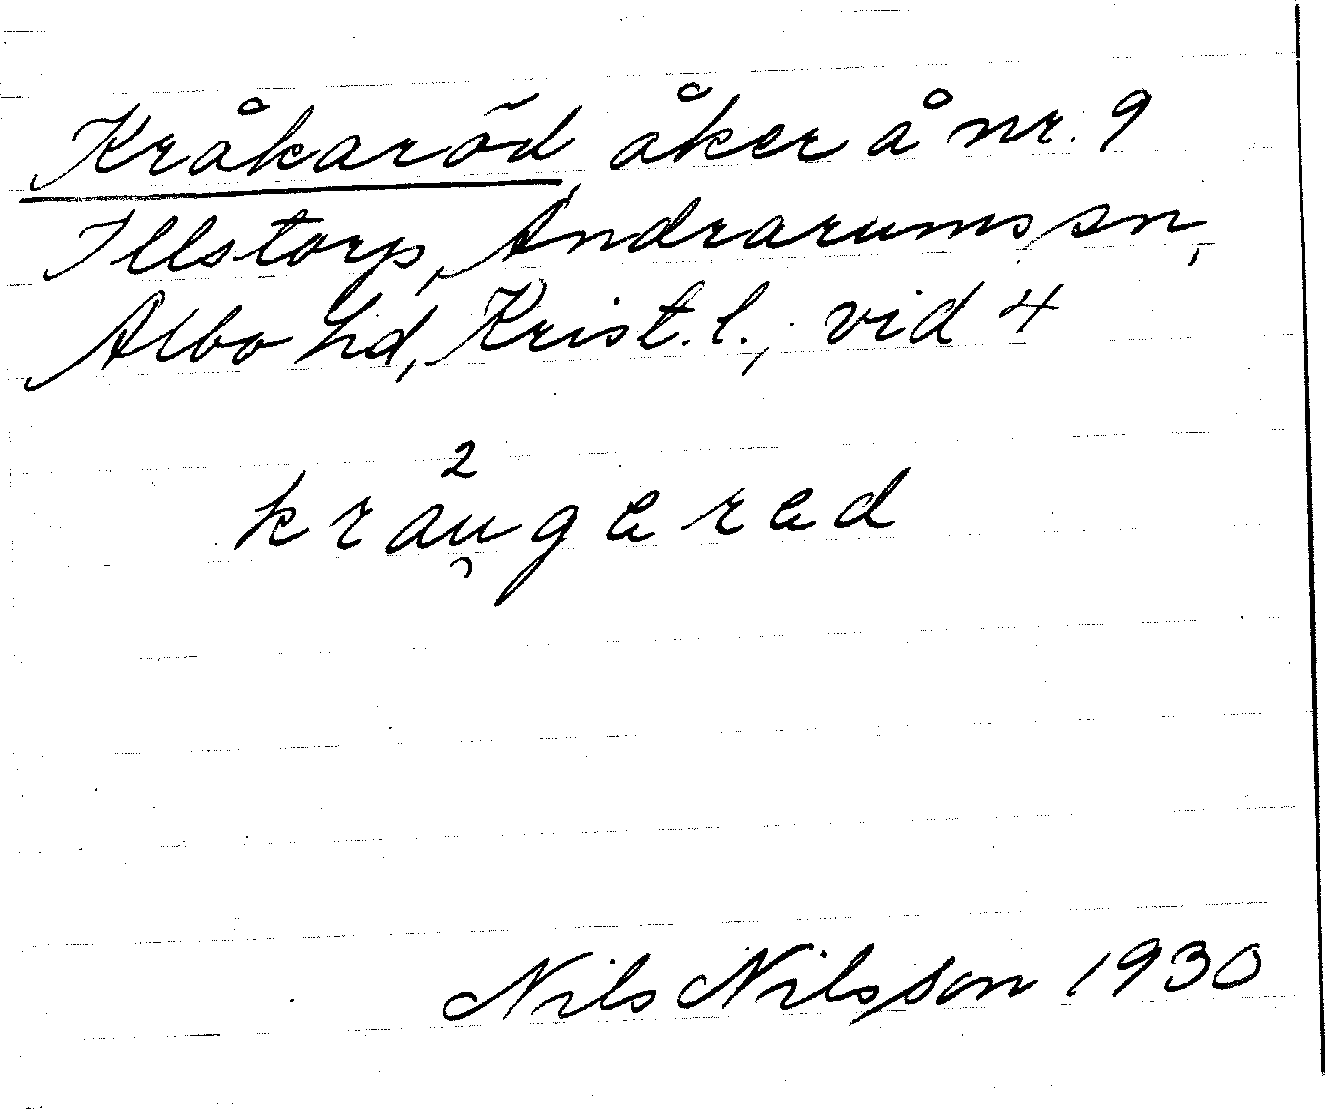 Kråkaröd, åker å nr. 9
Illstorp, Andrarums sn,
Albo hd, Krist. l., vid 4
2
krau̯gered
Nils Nilsson 1930